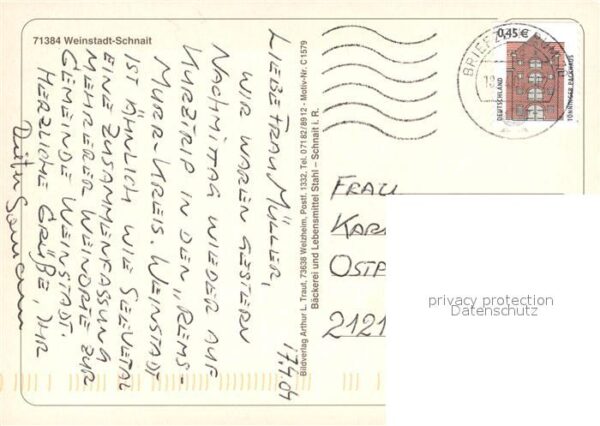 71384 Weinstadt-Schnait
17.4.04
LIEBE FRAU MÜLLER,
WIR WAREN GESTERN
NACHMITTAG WIEDER AUF
KURZTRIP IN DEN „REMS-
MURR-KREIS. WEINSTADT
IST ÄHNLICH WIE SEEVETAL
EINE ZUSAMMENFASSUNG
MEHRERER WEINORTE ZUR
GEMEINDE WEINSTADT.
HERZLICHE GRÜßE, IHR
Bildverlag Arthur L. Traut, 73638 Welzheim, Postf. 1332, Tel. 07182/8912 - Motiv-Nr. C1579
Bäckerei und Lebensmittel Stahl – Schnait i. R.
BRIEFZENTRUM
0,45 €
DEUTSCHLAND
TÖNNINGER PACKHAUS
FRAU
KAR
OSTP
2121
privacy protection
Datenschutz